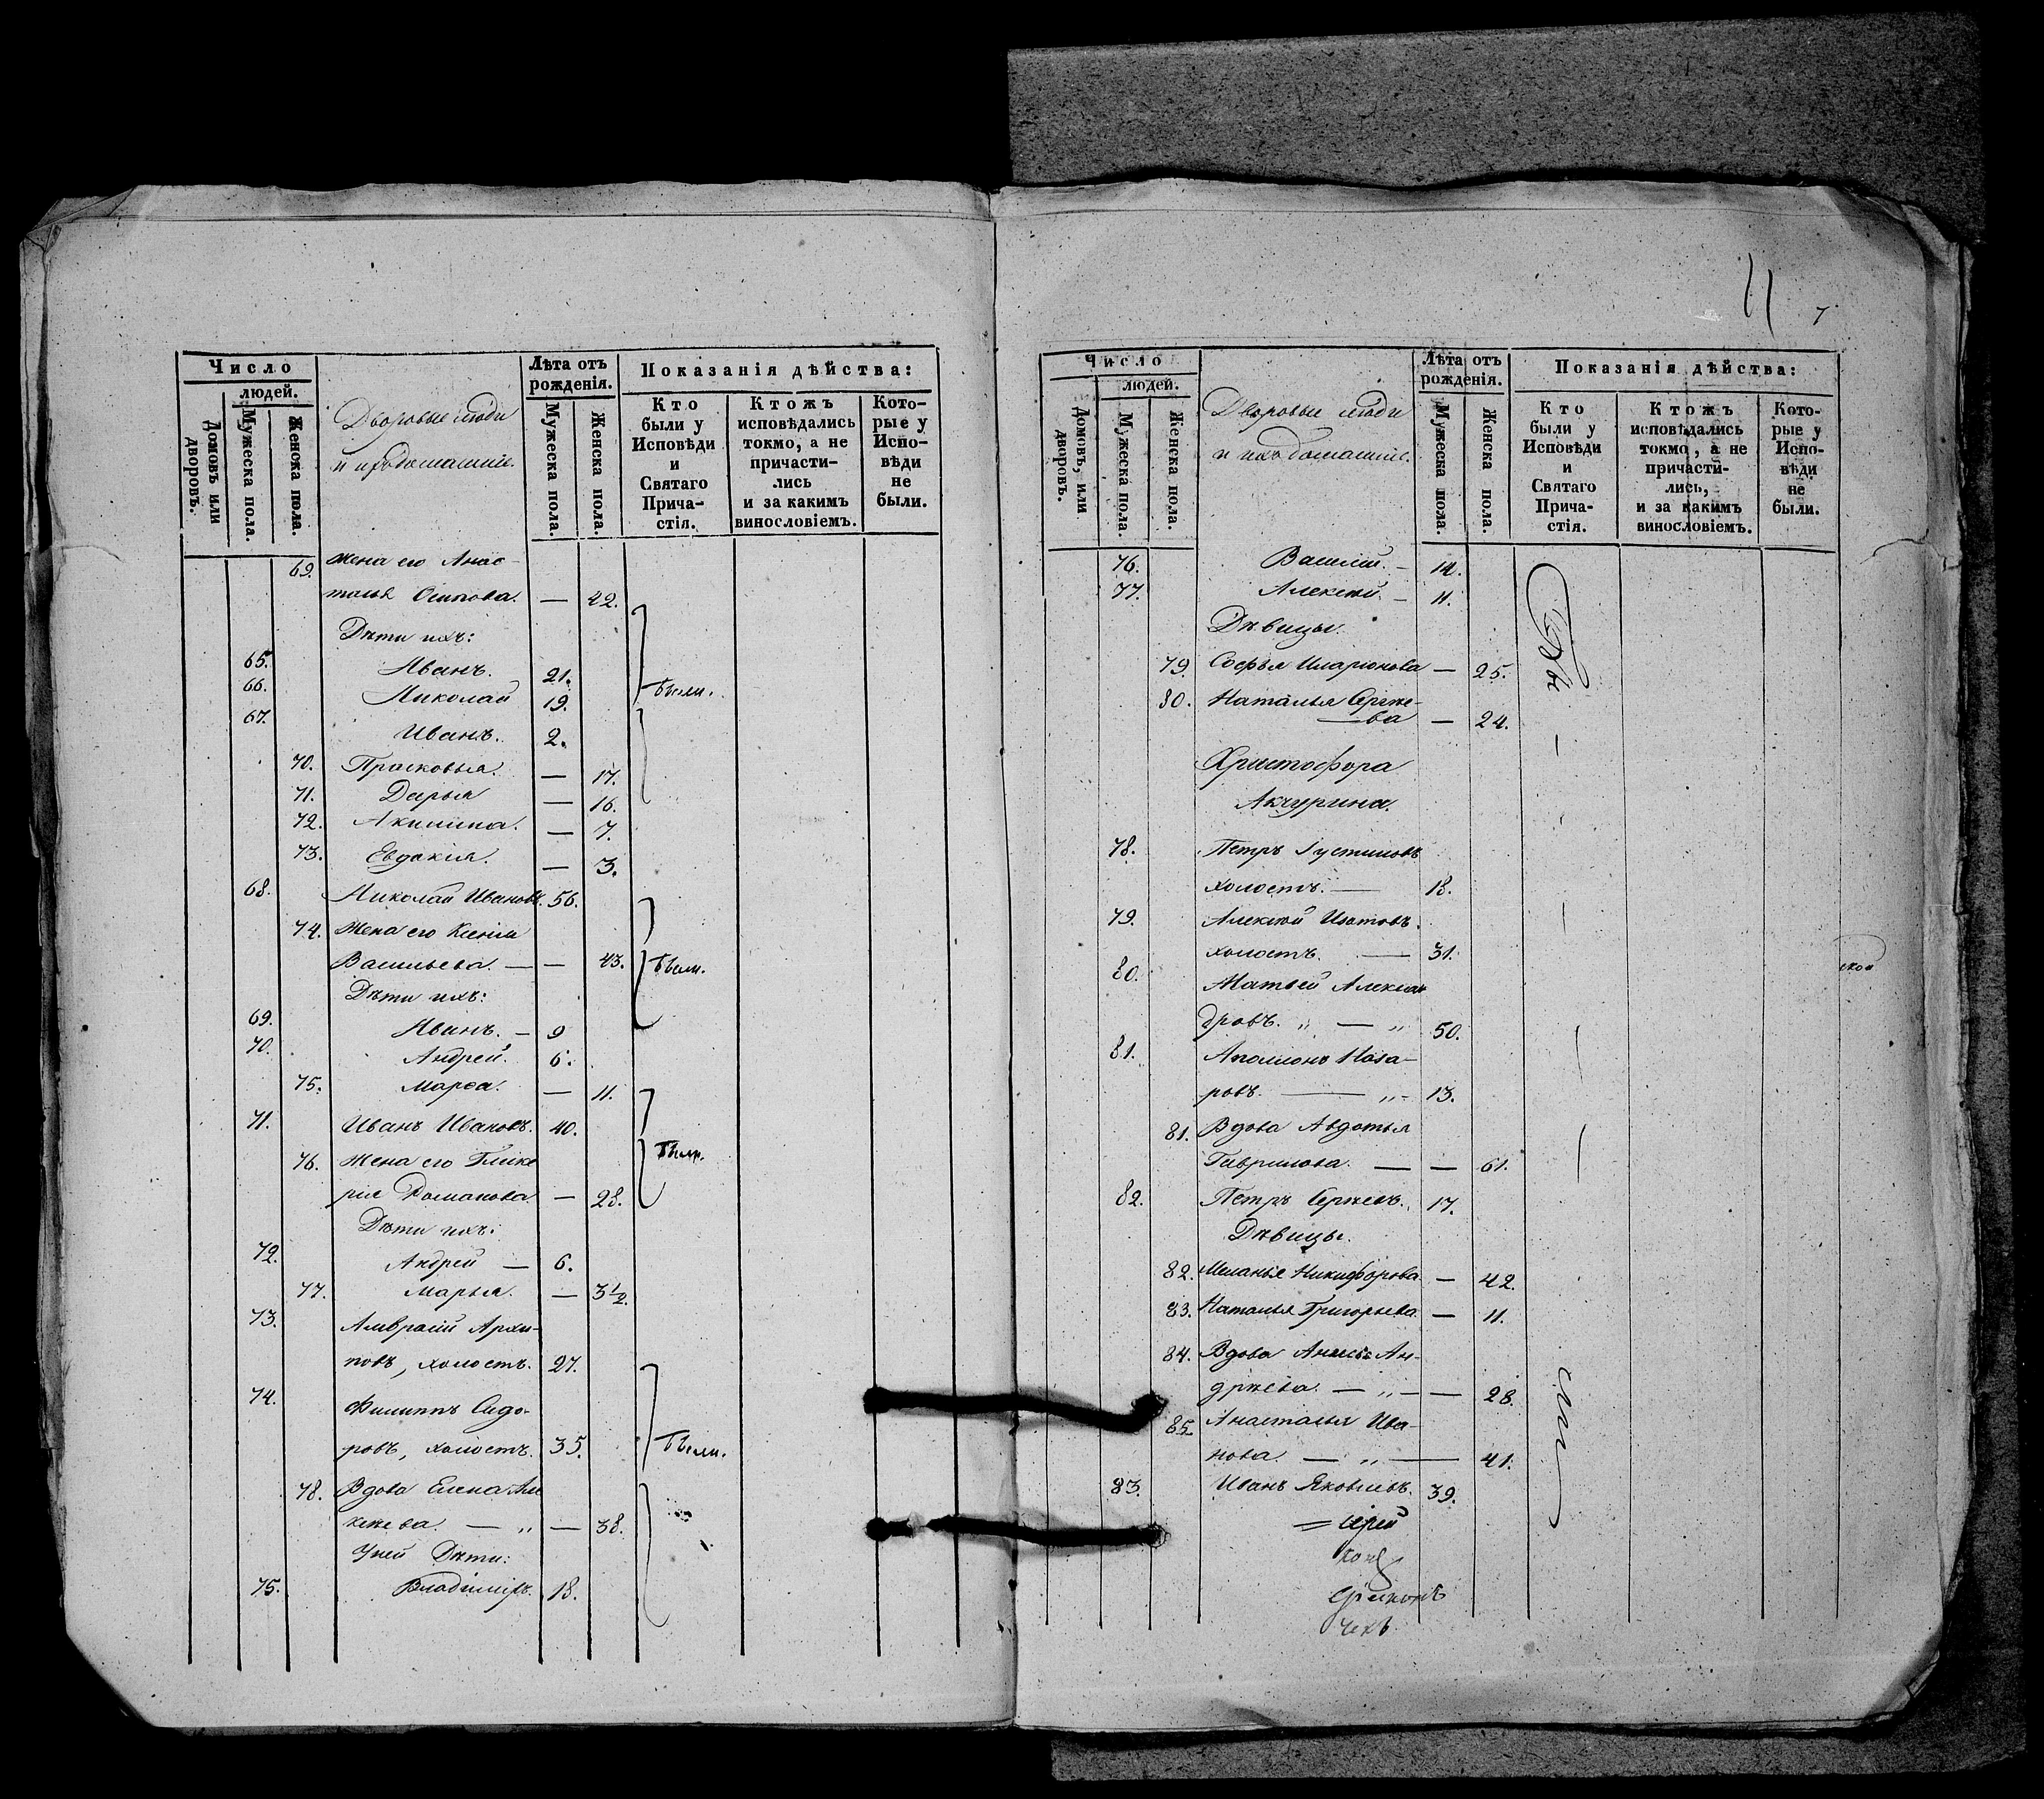 Число
людей.
Домовъ или дворовъ.
Мужеска пола.
Женска пола.
Дворовые люди
и ихъ домашніе.
Лѣта отъ рожденія.
Мужеска пола.
Женска пола.
Показанія дѣйства:
Кто были у Исповѣди и Святаго Прича-стія.
Ктожъ исповѣдались токмо, а не причасти-лись и за какимъ винословіемъ.
Кото-рые у Испо-вѣди не были.
69. Жена его Анас-
тасья Осипова. — 42.
Дѣти ихъ:
65. Иванъ. 21.
66. Николай 19. Были.
67. Иванъ. 2.
70. Прасковья. — 17.
71. Дарья — 16.
72. Акилина. — 7.
73. Евдокія. — 3.
68. Николай Ивановъ. 56.
74. Жена его Ксенія
Васильева. — — 43. Были.
Дѣти ихъ:
69. Иванъ. — 9
70. Андрей. 6.
75. Марѳа. — 11.
71. Иванъ Ивановъ. 40.
76. Жена его Глике Были.
рія Романова — 28.
Дѣти ихъ:
72. Андрей — 6.
77. Марья. — 3 1/2.
73. Амвросій Архи-
повъ, холостъ. 27.
74. Филиппъ Сидо-
ровъ, холостъ. 35. Были.
78. Вдова Елена Але
ксѣева. — „ — 38.
У ней Дѣти:
75. Владиміръ. 18.
7
Число
людей.
Домовъ, или дворовъ.
Мужеска пола
Женска пола.
Дворовые люди
и ихъ домашніе.
Лѣта отъ рожденія.
Мужеска пола.
Женска пола.
Показанія дѣйства:
Кто были у Исповѣди и Святаго Прича-стія.
Ктожъ исповѣдались токмо, а не причасти-лись, и за какимъ винословіемъ.
Кото-рые у Испо-вѣди не были.
76. Василій. — 14.
77. Алексѣй. — 11.
Дѣвицы.
79. Софья Иларіонова — 25.
80. Наталья Сергѣе-
ва — 24.
Христофора
Акчурина.
78. Петръ Іустиновъ
холостъ. — 18.
79. Алексѣй Изотовъ.
холостъ. — 31.
80. Матвей Алексан
дровъ. „ — „ 50.
81. Аполлонъ Наза-
ровъ. — „ - 13.
81. Вдова Авдотья
Гаврилова. — — 61.
82. Петръ Сергѣевъ. 17.
Дѣвицы.
82. Меланья Никифорова — 42.
83. Наталья Григорьева — 11.
84. Вдова Анисья Ан-
дрѣева. — „ — — 28.
85. Анастасья Ива-
нова. — „ — 41.
83. Иванъ Яковлевъ. 39.
Іерей
ской